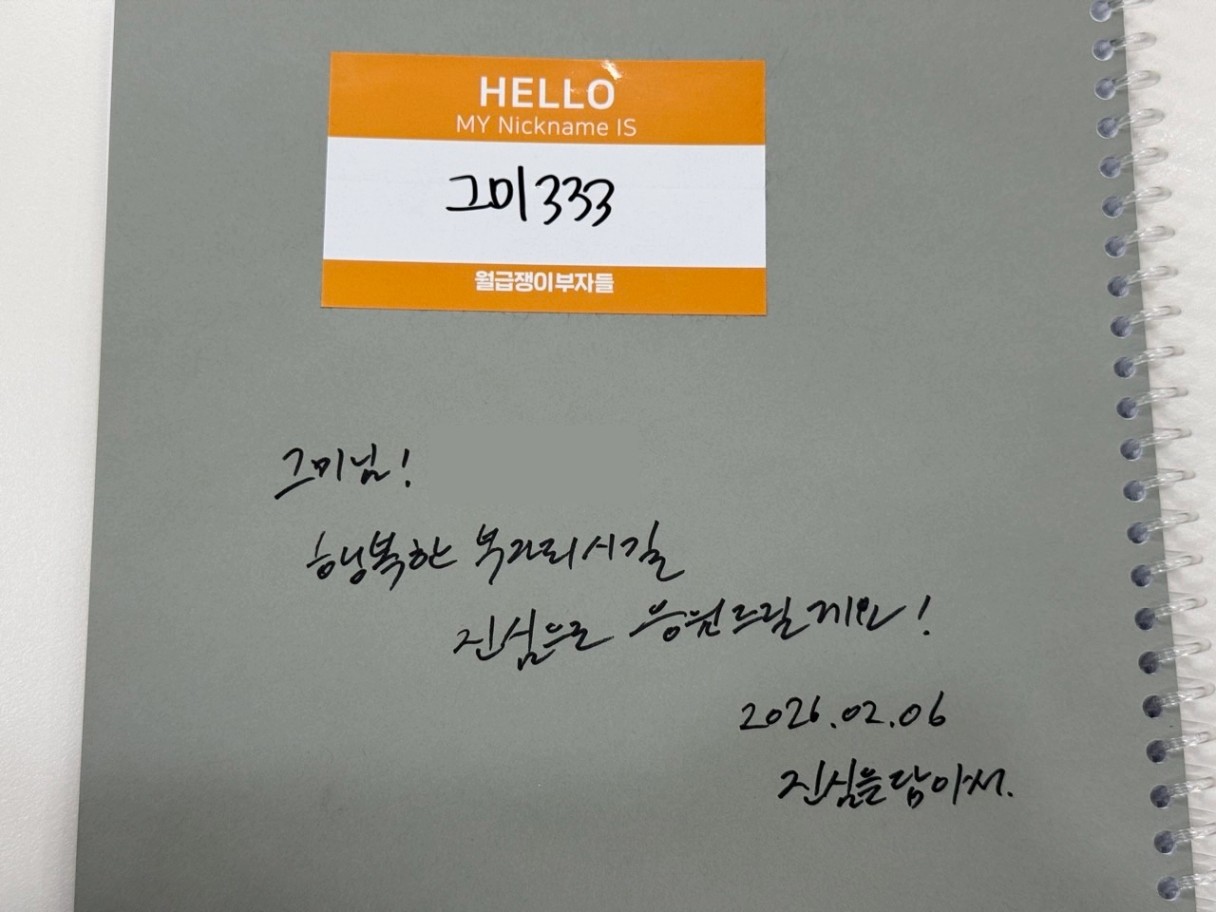 HELLO
MY Nickname IS
그미333
월급쟁이부자들
그미님!
행복한 부자되시길
진심으로 응원드릴게요!
2026.02.06
진심을담아서.